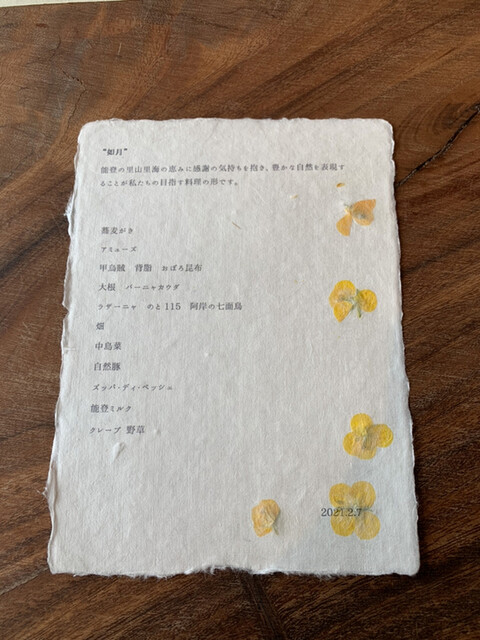 “如月”
能登の里山里海の恵みに感謝の気持ちを抱き、豊かな自然を表現す
ることが私たちの目指す料理の形です。
蕎麦がき
アミューズ
甲烏賊 背脂 おぼろ昆布
大根 バーニャカウダ
ラザーニャ のと115 阿岸の七面鳥
畑
中島菜
自然豚
ズッパ・ディ・ペッシェ
能登ミルク
クレープ 野草
2021.2.7